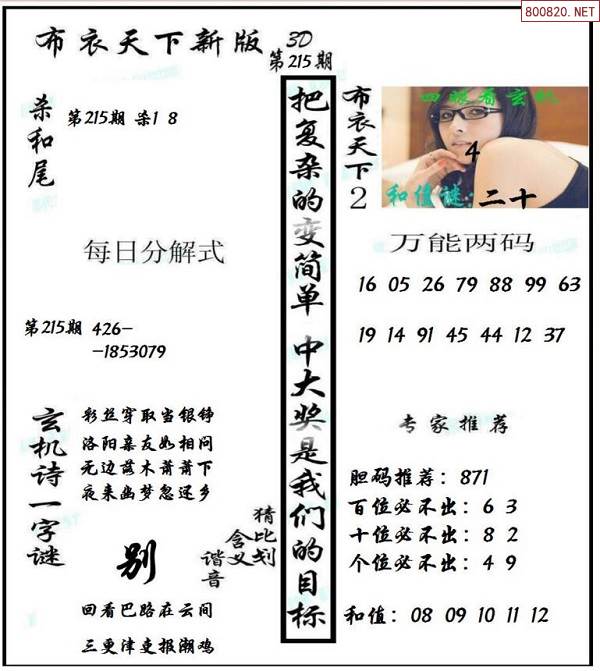 800820.NET
布衣天下新版
3D
第215期
杀和尾
第215期 杀1 8
每日分解式
第215期 426-
-1853079
玄机诗一字谜
彩丝穿取当银铮
洛阳亲友如相问
无边落木萧萧下
夜来幽梦忽还乡
别
猜比划
含义
谐音
回看巴路在云间
三更津吏报潮鸡
把复杂的变简单 中大奖是我们的目标
布衣天下2
四眼看玄机
4
和值谜:二十
万能两码
16 05 26 79 88 99 63
19 14 91 45 44 12 37
专家推荐
胆码推荐:871
百位必不出:6 3
十位必不出:8 2
个位必不出:4 9
和值:08 09 10 11 12